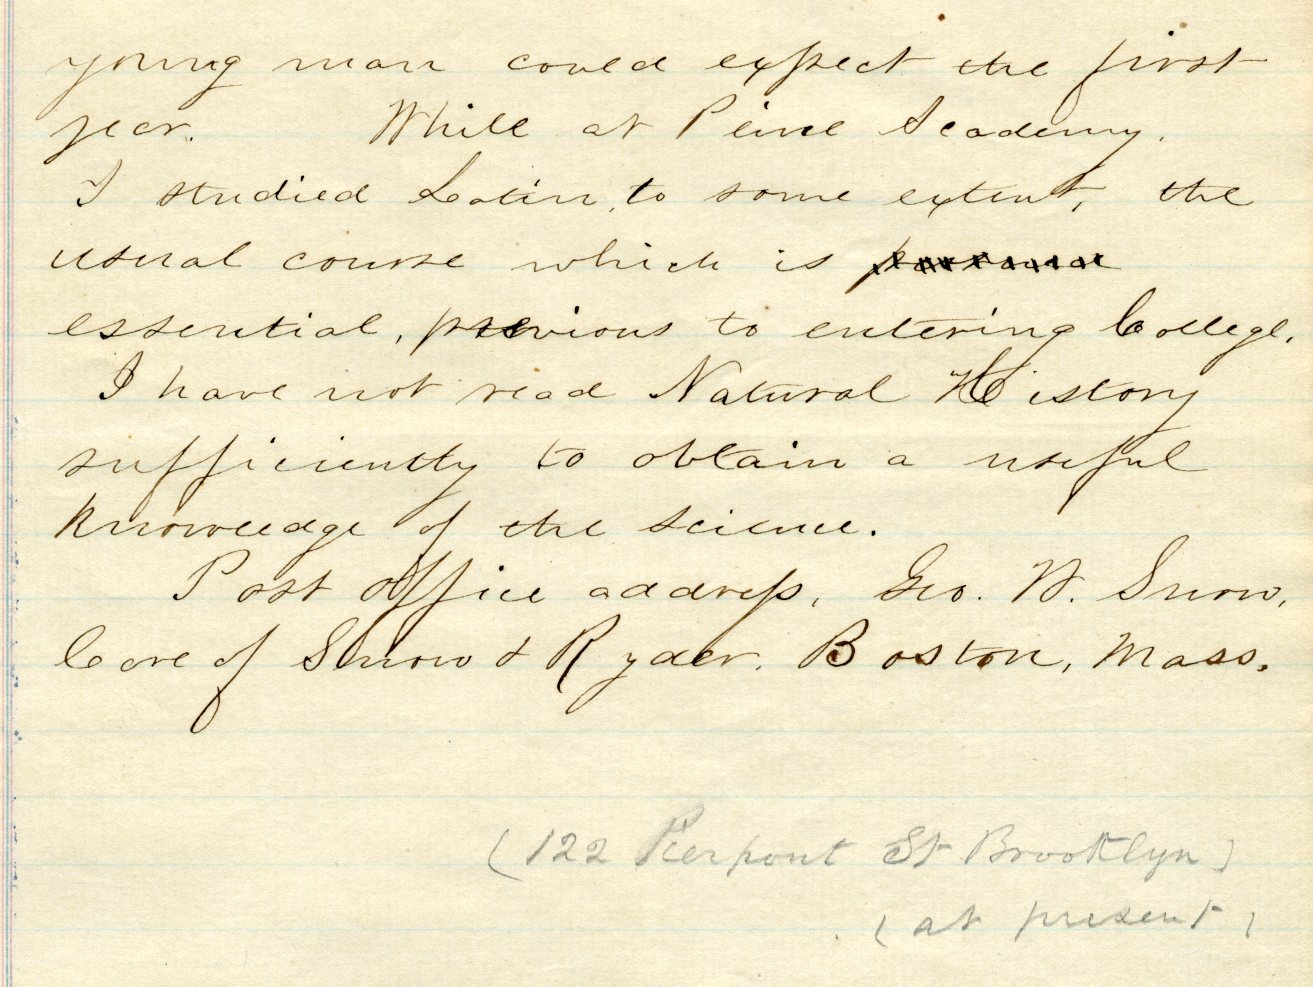 young man could expect the first
year. While at Peirce Academy.
I studied Latin, to some extent, the
usual course which is
essential, previous to entering College.
I have not read Natural History
sufficiently to obtain a useful
knowledge of the science.
Post Office address, Geo. W. Snow,
Care of Snow & Ryder. Boston, Mass.
(122 Pierpont St Brooklyn)
(at present)